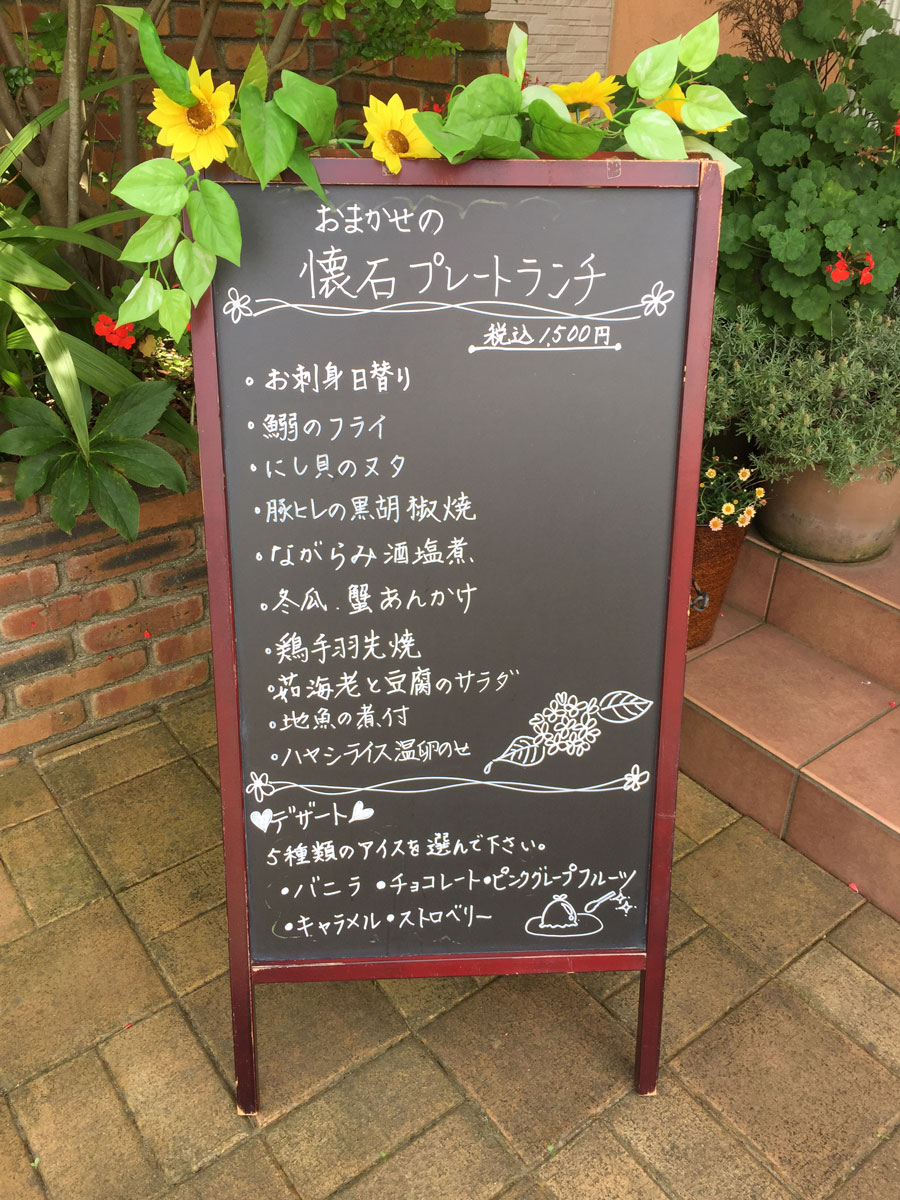 おまかせの
懐石プレートランチ
税込1,500円
・お刺身日替り
・鰯のフライ
・にし貝のヌタ
・豚ヒレの黒胡椒焼
・ながらみ酒塩煮
・冬瓜.蟹あんかけ
・鶏手羽先焼
・茹海老と豆腐のサラダ
・地魚の煮付
・ハヤシライス温卵のせ
デザート
5種類のアイスを選んで下さい。
・バニラ ・チョコレート・ピンクグレープフルーツ
・キャラメル・ストロベリー